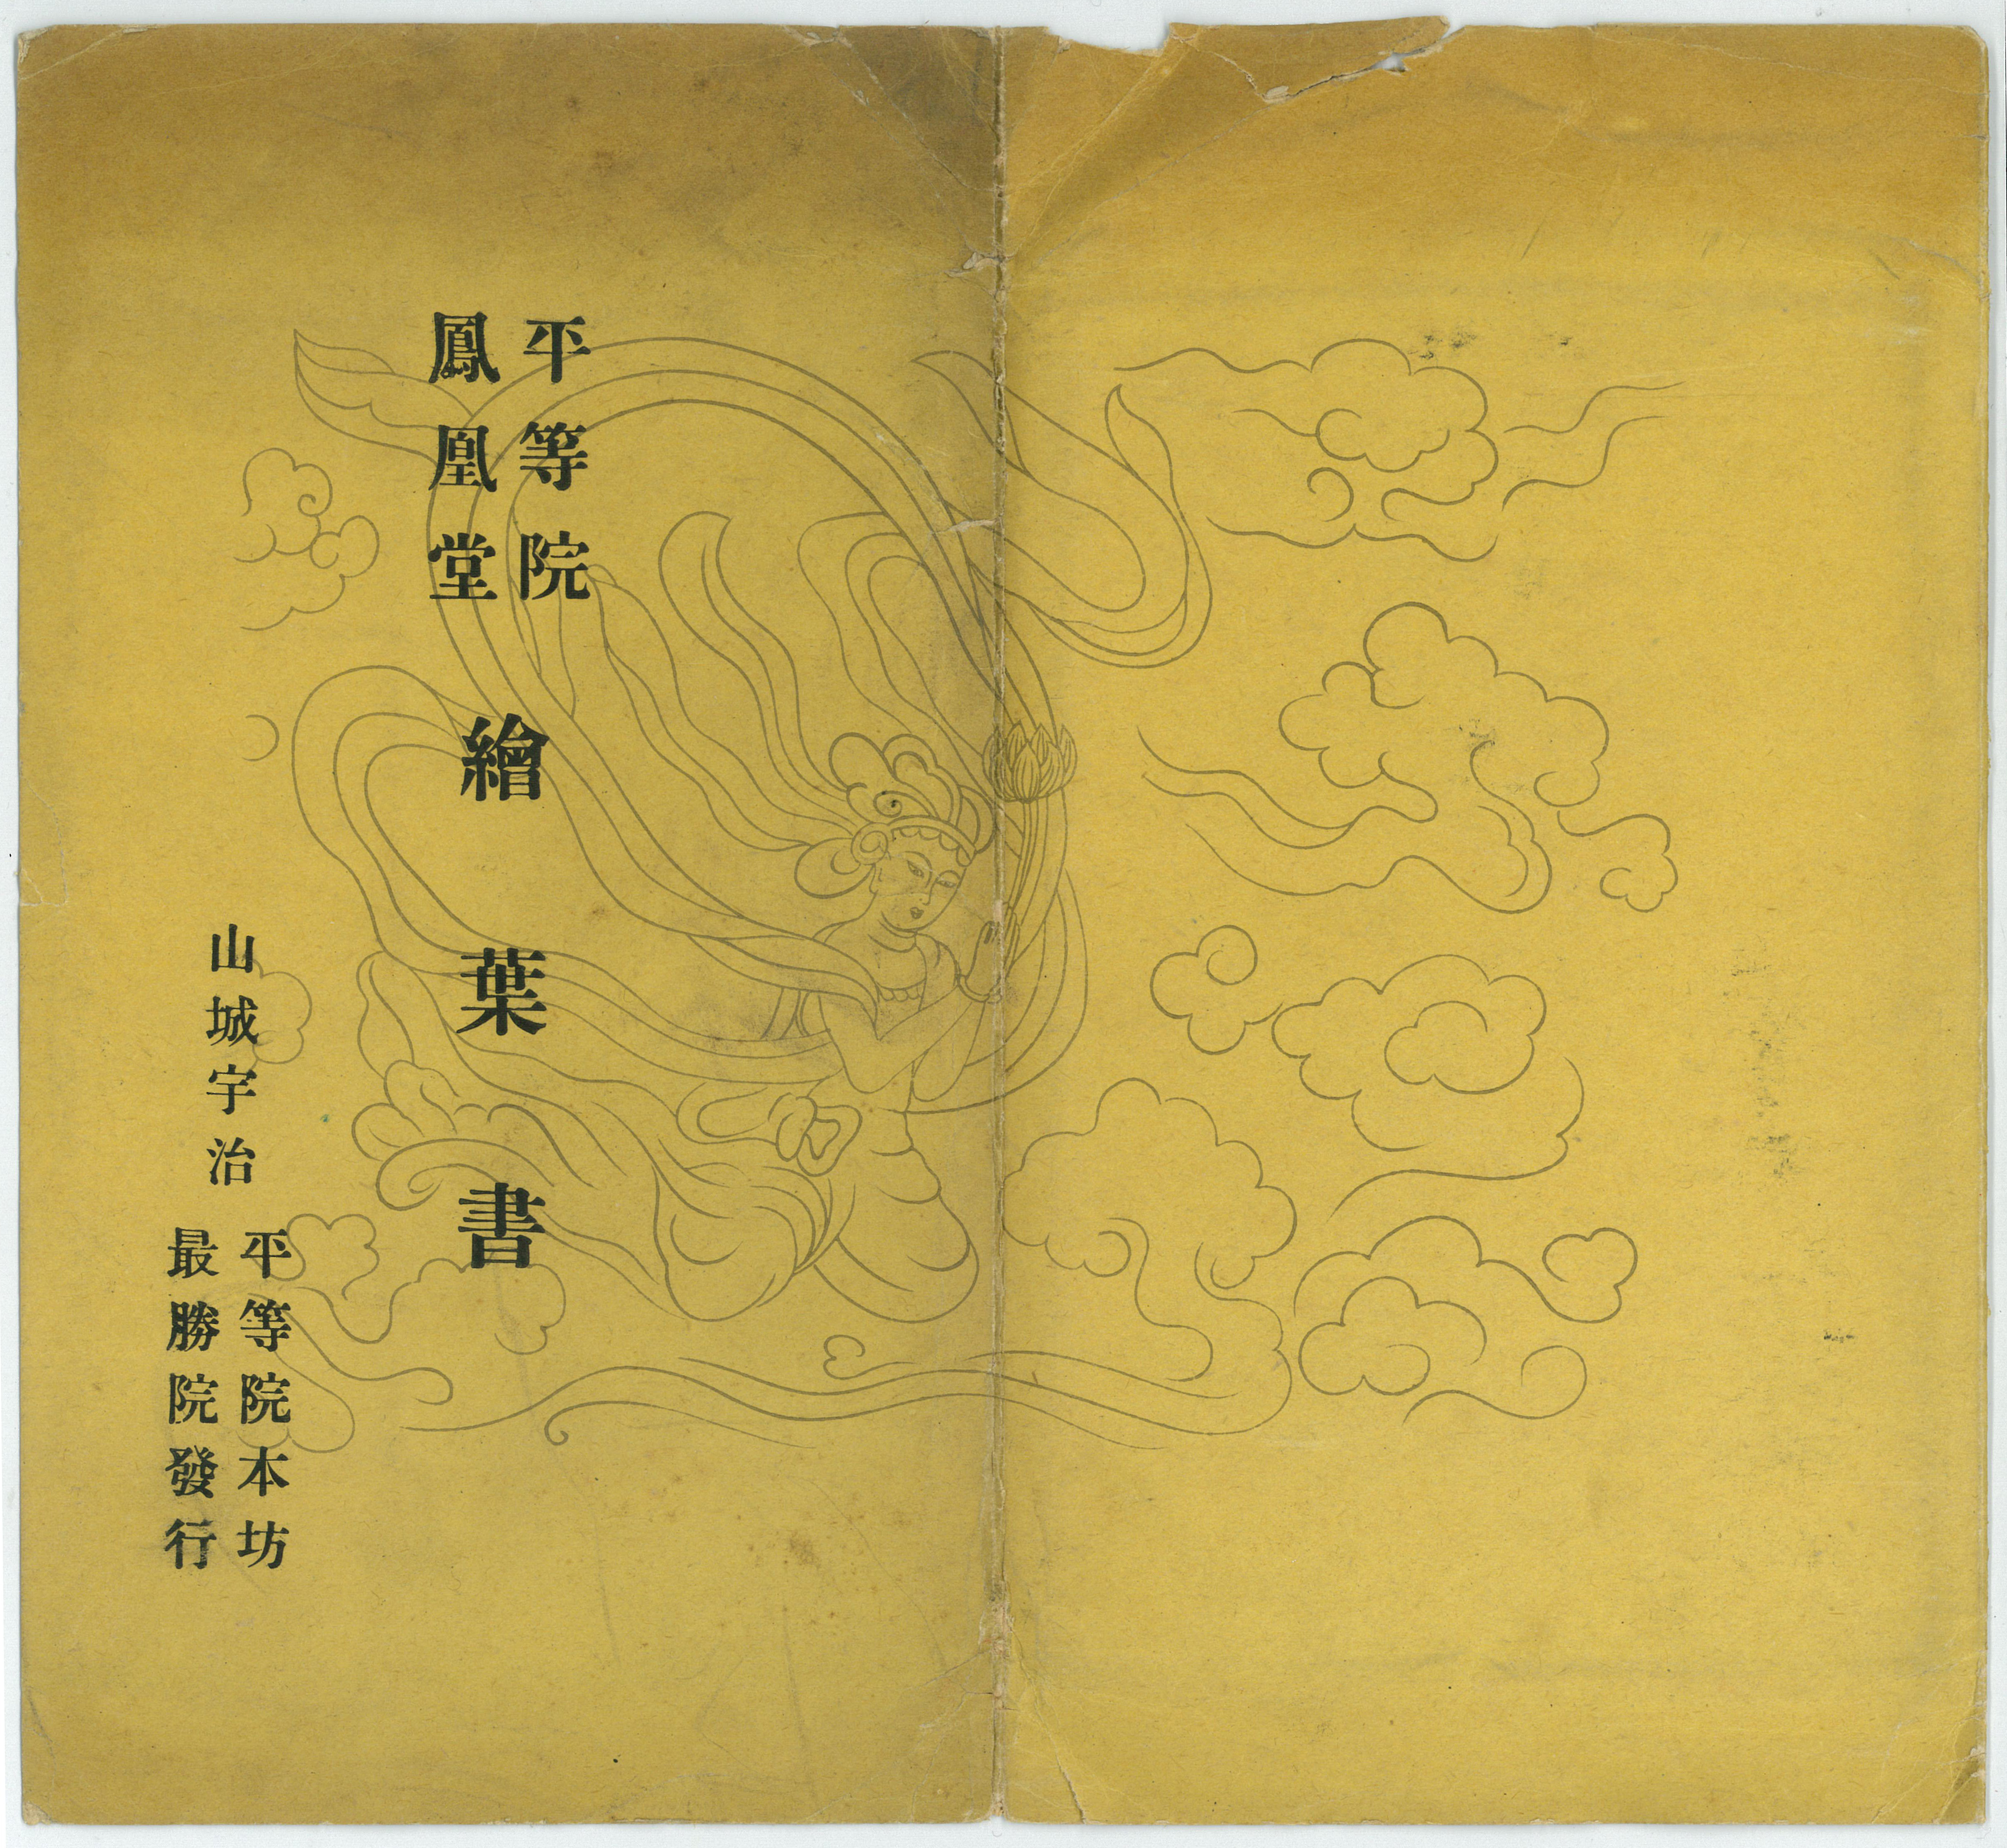 平等院
鳳凰堂
繪葉書
山城宇治
平等院本坊
最勝院發行